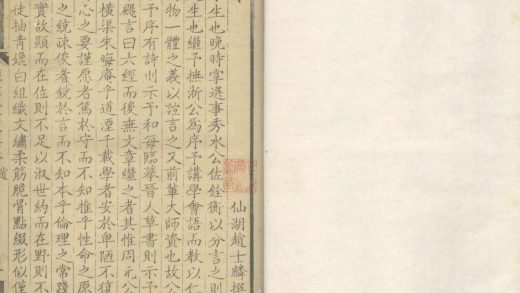 仙湖趙士麟撰
生也晚時掌選事秀水公佐銓衡以分言之則
生也繼予撫浙公為序予講學會語而教以仁
物一體之義以諠言之又前輩大師資也故公
颺言曰六經而後無文章繼之者其惟周元公
予序有詩則示予和每臨摹晉人草書則示予
橫渠朱晦庵乎道湮千載學者安於卑陋不復
心之要謹愿者篤於守而不知推乎性命之原
之統疎俊者銳於言而不知本乎倫理之常躋
實故顯而在位則不足以淑世約而在野則不
徒柚青媲白組織文繡柔筋脆骨點綴形似僅